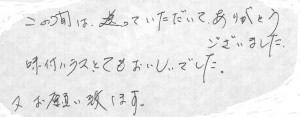 この間は、送っていただいて、ありがとう
ございました。
味付 とてもおいしいでした。
又お願い致します。